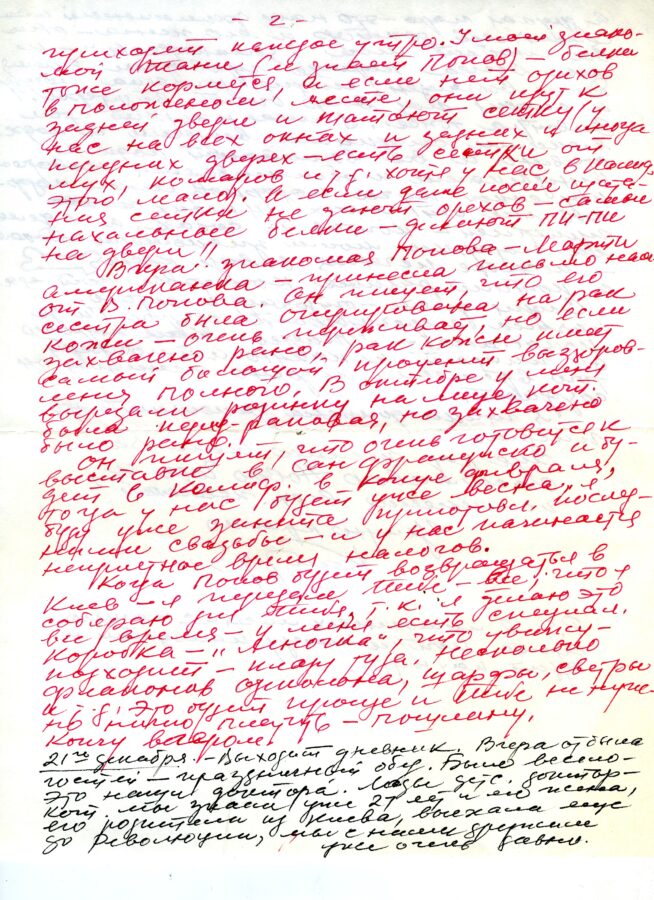 - 2 -
приходят каждое утро. У моей знако-
мой Тани (и знает Попов) - белки
тоже кормятся, и если нет орехов
в положенном месте, они идут к
задней двери и шатают сетку (у
нас на всех окнах и задних и иногда
передних дверех - есть сетки от
мух, комаров и т.д. хотя у нас в Калиф.
этого мало. А если даже после шата-
ния сетки не дают орехов - самые
нахальные белки - делают пи-пи
на двери!!
Вчера знакомая Попова -
американка - принесла письмо нам
от В. Попова. Он пишет что его
сестра была оперирована на рак
кожи - очень переживает, но если
захвачено рано, рак кожи имеет
самый большой процент выздоров-
ления полного. В октябре у меня
вырезали родинку на лице, кот.
была перед-раковая, но захвачено
было рано.
Он пишет, что очень готовится к
выставке в Сан Франциско и бу-
дет в Калиф. в конце февраля,
тогда у нас будет уже весна, я
буду уже занята приготовл. послед-
ними свадьбы - и у нас начинается
неприятное время налогов.
Когда Попов будет возвращаться в
Киев - я передам Тебе - все что я
собираю для Тебя, т.к. я делаю это
все время - у меня есть специал.
коробка - "Леночка", что увижу -
подходит - кладу туда. Несколько
флаконов одеколона, шарфы, светры
и т.д. Это будет проще и Тебе не нуж-
но будет платить - пошлину.
Кончу вечером.
21го декабря. - Выходит дневник. Вчера отбыла
гостей - праздничный обед. Было весело -
это наши доктора. Лады дет. доктор -
кот. мы знаем уже 27 лет и его жена,
его родители из Киева, выехали еще
до революции, мы с ними дружим
уже очень давно.